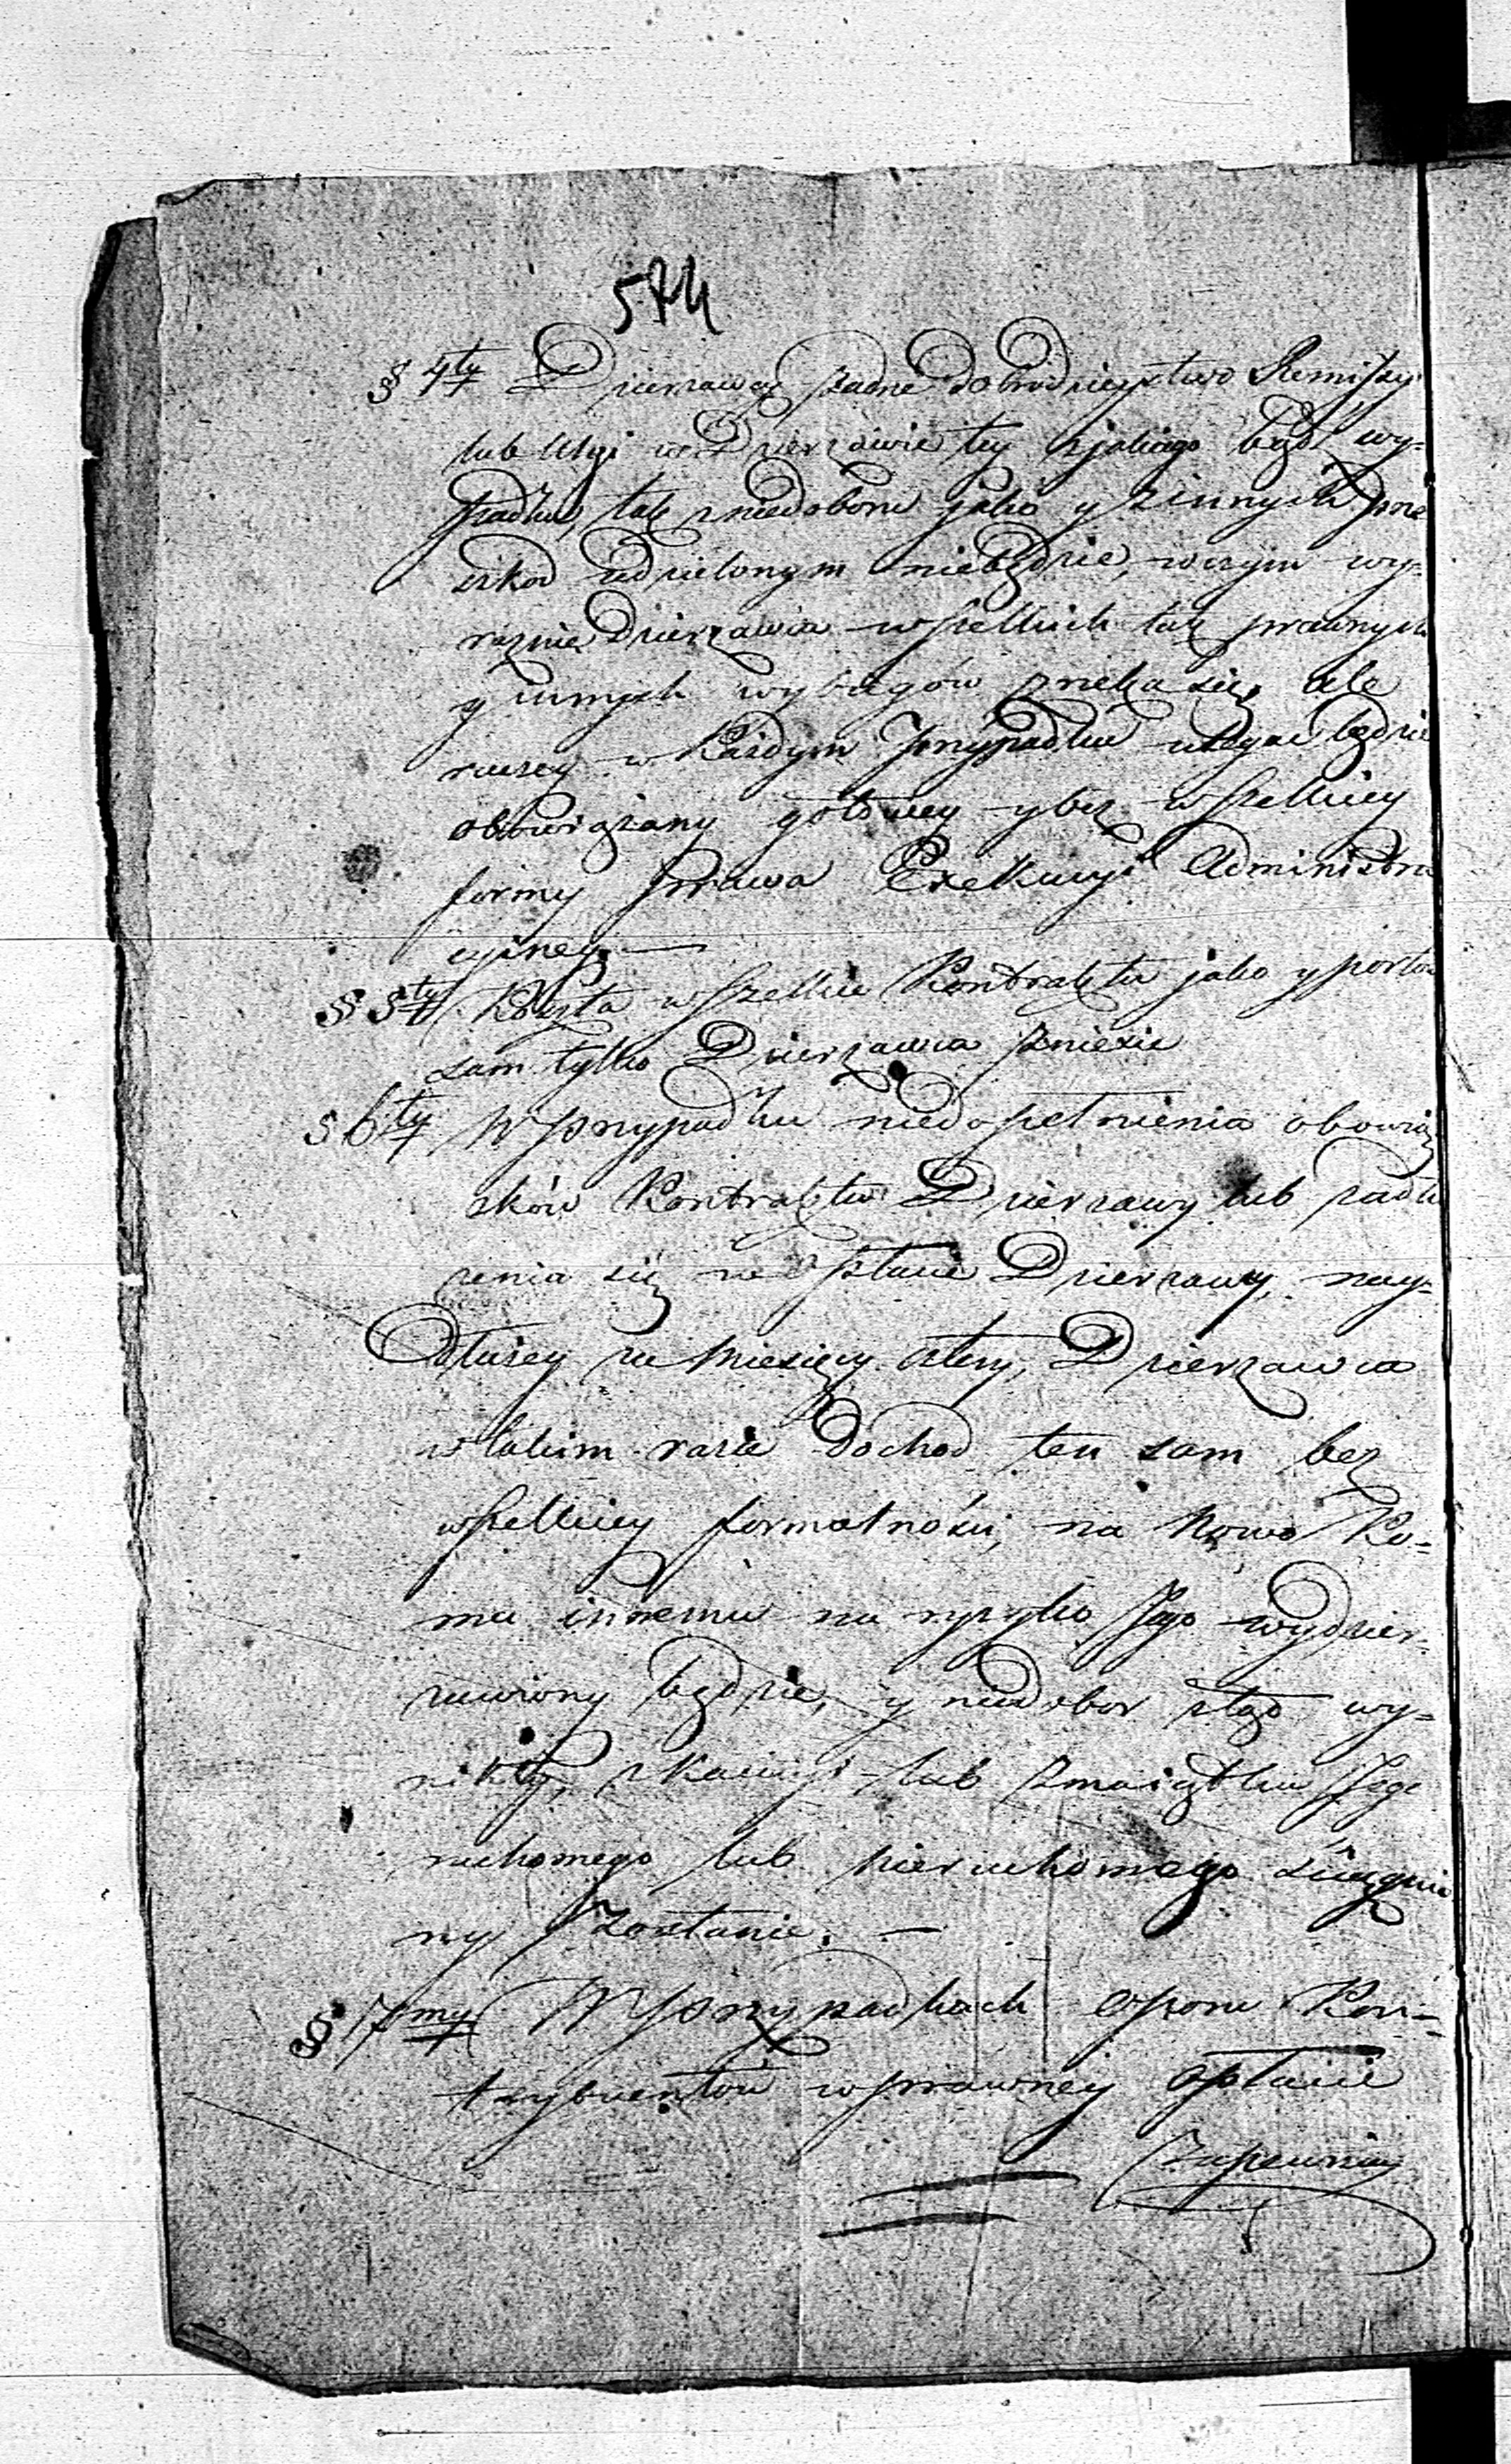 574
§ 4ty Dzierzawcy żadne dobrodzieystwo Remissy
lub Ulgi w Dzierzawie tey z jakiego bądź wy-
padku, tak z niedoboru jako y z innych prze
szkod udzielonym niebędzie, w czym wy-
raznie Dzierzawca wszelkich tak prawnych
y innych wybiegów zrzeka się, ale
raczey w Każdym Przypadku ulegać będzie
obowiązany gotowey y bez wszelkiey
formy Prawa Exekucyi Administra
cyiney. —
§ 5ty Koszta wszelkie Kontraktu jako y porto
sam tylko Dzierzawca zniesie
§ 6ty W Przypadku niedopełnienia obowią
zków Kontraktu Dzierzawy lub zadłu
żenia się w Opłacie Dzierzawy, nay-
dłużey za Miesięcy cztery, Dzierzawca
w takim razie dochod ten sam bez
wszelkiey formalności, na Nowo Ko-
mu innemu na ryzyko Jego wydzier-
zawiony będzie, y niedobor ztąd wy-
nikły, z kaucyi lub z maiątku Jego
ruchomego lub Nieruchomego ściągnio
ny zostanie. —
§ 7my W Przypadkach oporu Kon-
trybuentów w prawney Opłacie
Zapewnia